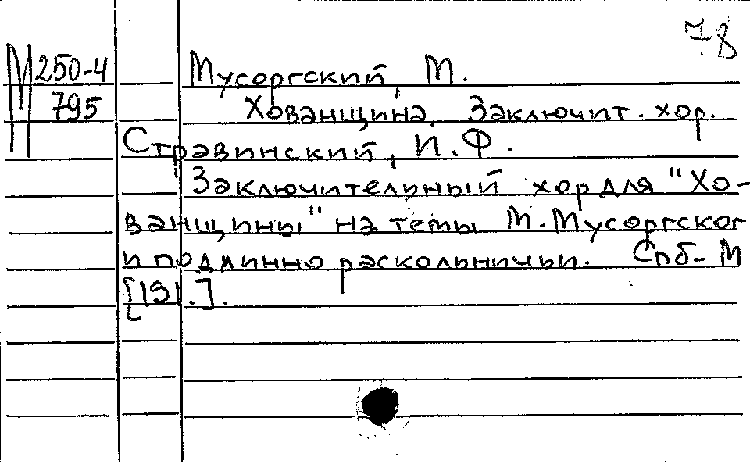 78
М 250-4 Мусоргский, М.
795 Хованщина. Заключит. хор.
Стравинский, И.Ф.
Заключительный хор для "Хо-
ванщины" на темы М. Мусоргског
и подлинно раскольничьи. Спб-М
[191.].